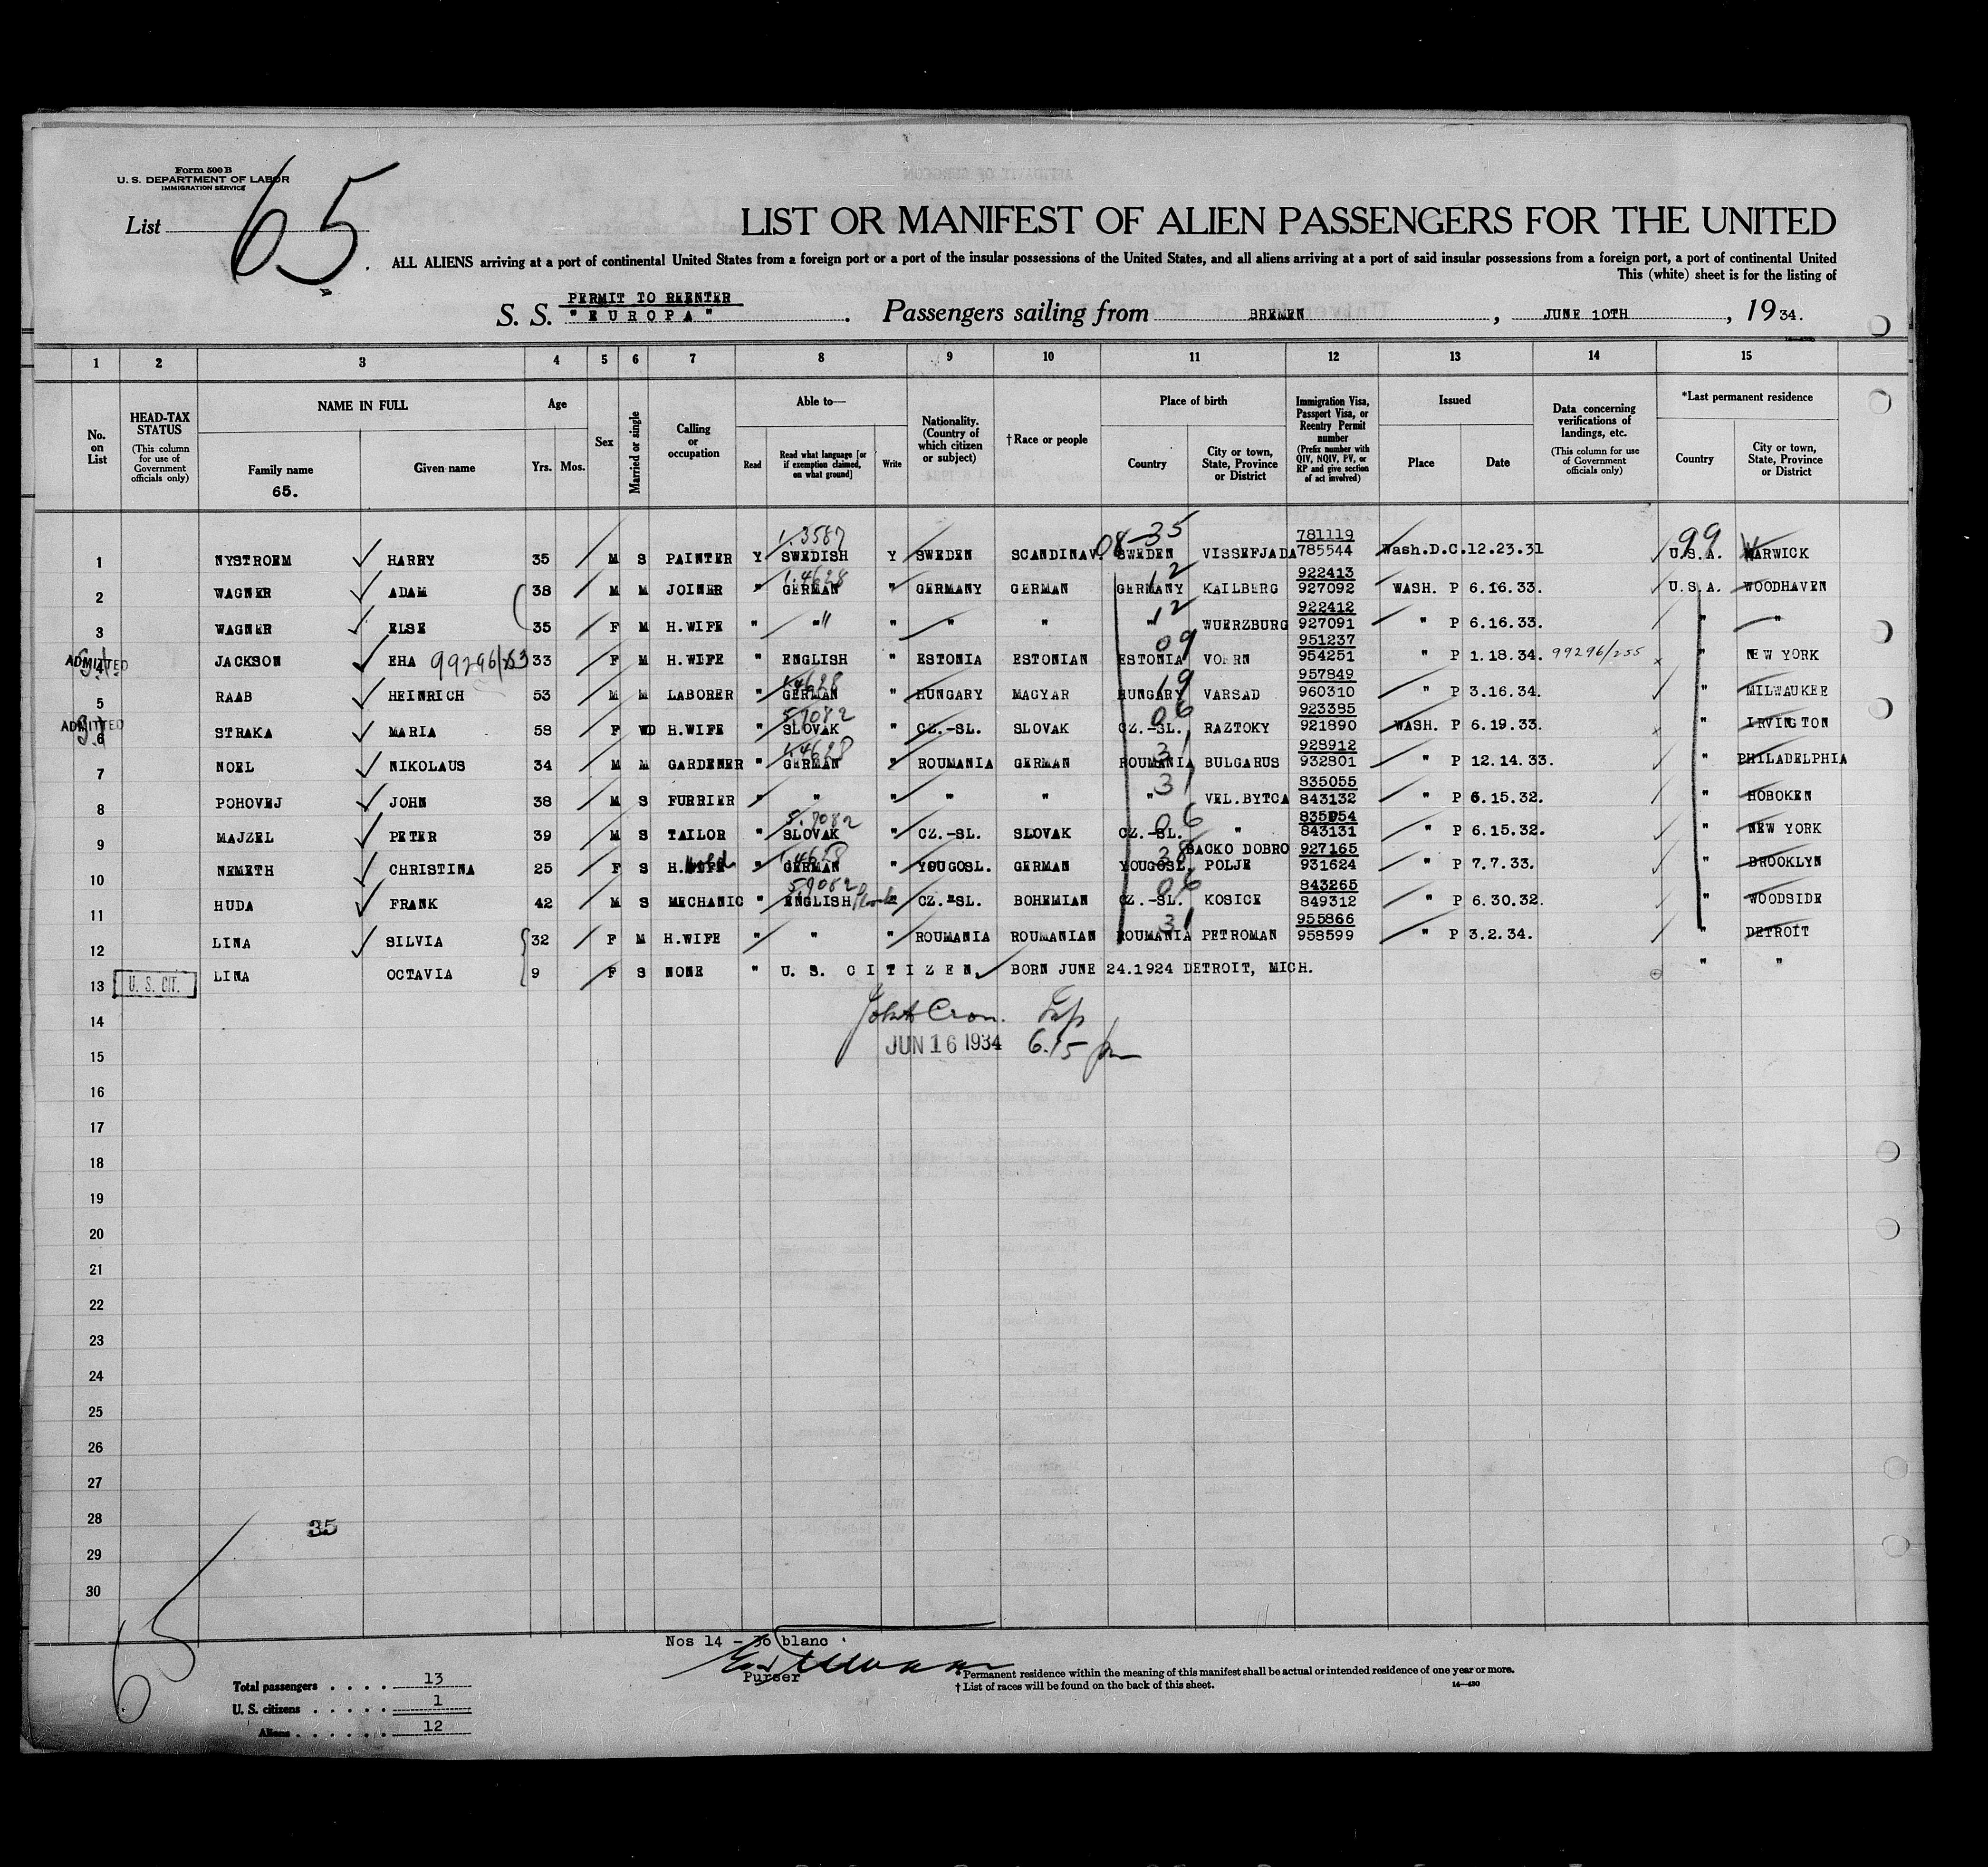 Form 500 B
U. S. DEPARTMENT OF LABOR
IMMIGRATION SERVICE
List 65
LIST OR MANIFEST OF ALIEN PASSENGERS FOR THE UNITED
ALL ALIENS arriving at a port of continental United States from a foreign port or a port of the insular possessions of the United States, and all aliens arriving at a port of said insular possessions from a foreign port, a port of continental United
This (white) sheet is for the listing of
PERMIT TO REENTER
S. S. "EUROPA". Passengers sailing from BREMEN, JUNE 10TH, 1934.
1 2 3 4 5 6 7 8 9 10 11 12 13 14 15
No. on List
HEAD-TAX STATUS
(This column for use of Government officials only)
NAME IN FULL
Family name
65.
Given name
Age
Yrs. Mos.
Sex
Married or single
Calling or occupation
Able to—
Read
Read what language [or if exemption claimed, on what ground]
Write
Nationality. (Country of which citizen or subject)
†Race or people
Place of birth
Country
City or town, State, Province or District
Immigration Visa, Passport Visa, or Reentry Permit number
(Prefix number with QIV, NQIV, PV, or RP and give section of act involved)
Issued
Place
Date
Data concerning verifications of landings, etc.
(This column for use of Government officials only)
*Last permanent residence
Country
City or town, State, Province or District
1.3587 08-35 781119 99
1 NYSTROEM HARRY 35 M S PAINTER Y SWEDISH Y SWEDEN SCANDINAV. SWEDEN VISSEFJADA 785544 Wash.D.C. 12.23.31 U.S.A. WARWICK
1.4628 12 922413
2 WAGNER ADAM 38 M M JOINER " GERMAN " GERMANY GERMAN GERMANY KAILBERG 927092 WASH. P 6.16.33. U.S.A. WOODHAVEN
12 922412
3 WAGNER ELSE 35 F M H.WIFE " " " " " " WUERZBURG 927091 " P 6.16.33. " "
09 951237
ADMITTED 4 JACKSON EHA 99296/253 33 F M H.WIFE " ENGLISH " ESTONIA ESTONIAN ESTONIA 954251 " P 1.18.34. 99296/255 " NEW YORK
1.4628 19 957849
5 RAAB HEINRICH 53 M M LABORER " GERMAN " HUNGARY MAGYAR HUNGARY VARSAD 960310 " P 3.16.34. " MILWAUKEE
5.9082 06 923385
ADMITTED 6 STRAKA MARIA 58 F WD H.WIFE " SLOVAK " CZ.-SL. SLOVAK CZ.-SL. RAZTOKY 921890 WASH. P 6.19.33. " IRVINGTON
1.4628 31 928912
7 NOEL NIKOLAUS 34 M M GARDENER " GERMAN " ROUMANIA GERMAN ROUMANIA BULGARUS 932801 " P 12.14.33. " PHILADELPHIA
31 835055
8 POHOVEJ JOHN 38 M S FURRIER " " " " " " VEL.BYTCA 843132 " P 6.15.32. " HOBOKEN
5.9082 06 835054
9 MAJZEL PETER 39 M S TAILOR " SLOVAK " CZ.-SL. SLOVAK CZ.-SL. " 843131 " P 6.15.32. " NEW YORK
1.4628 38 BACKO DOBRO 927165
10 NEMETH CHRISTINA 25 F S H.WIFE hold " GERMAN " YOUGOSL. GERMAN YOUGOSL. POLJE 931624 " P 7.7.33. " BROOKLYN
5.9082 06 843265
11 HUDA FRANK 42 M S MECHANIC " ENGLISH " CZ.-SL. BOHEMIAN CZ.-SL. KOSICE 849312 " P 6.30.32. " WOODSIDE
31 955866
12 LINA SILVIA 32 F M H.WIFE " " " ROUMANIA ROUMANIAN ROUMANIA PETROMAN 958599 " P 3.2.34. " DETROIT
13 U. S. CIT. LINA OCTAVIA 9 F S NONE " U. S. CITIZEN BORN JUNE 24.1924 DETROIT, MICH. " "
14
JUN 16 1934 6.15 pm
15
16
17
18
19
20
21
22
23
24
25
26
27
28
35
29
30
65
Nos 14 - 30 blanc
Purser
Total passengers . . . . 13
U. S. citizens . . . . . 1
Aliens . . . . . . 12
* Permanent residence within the meaning of this manifest shall be actual or intended residence of one year or more.
† List of races will be found on the back of this sheet.
14—430